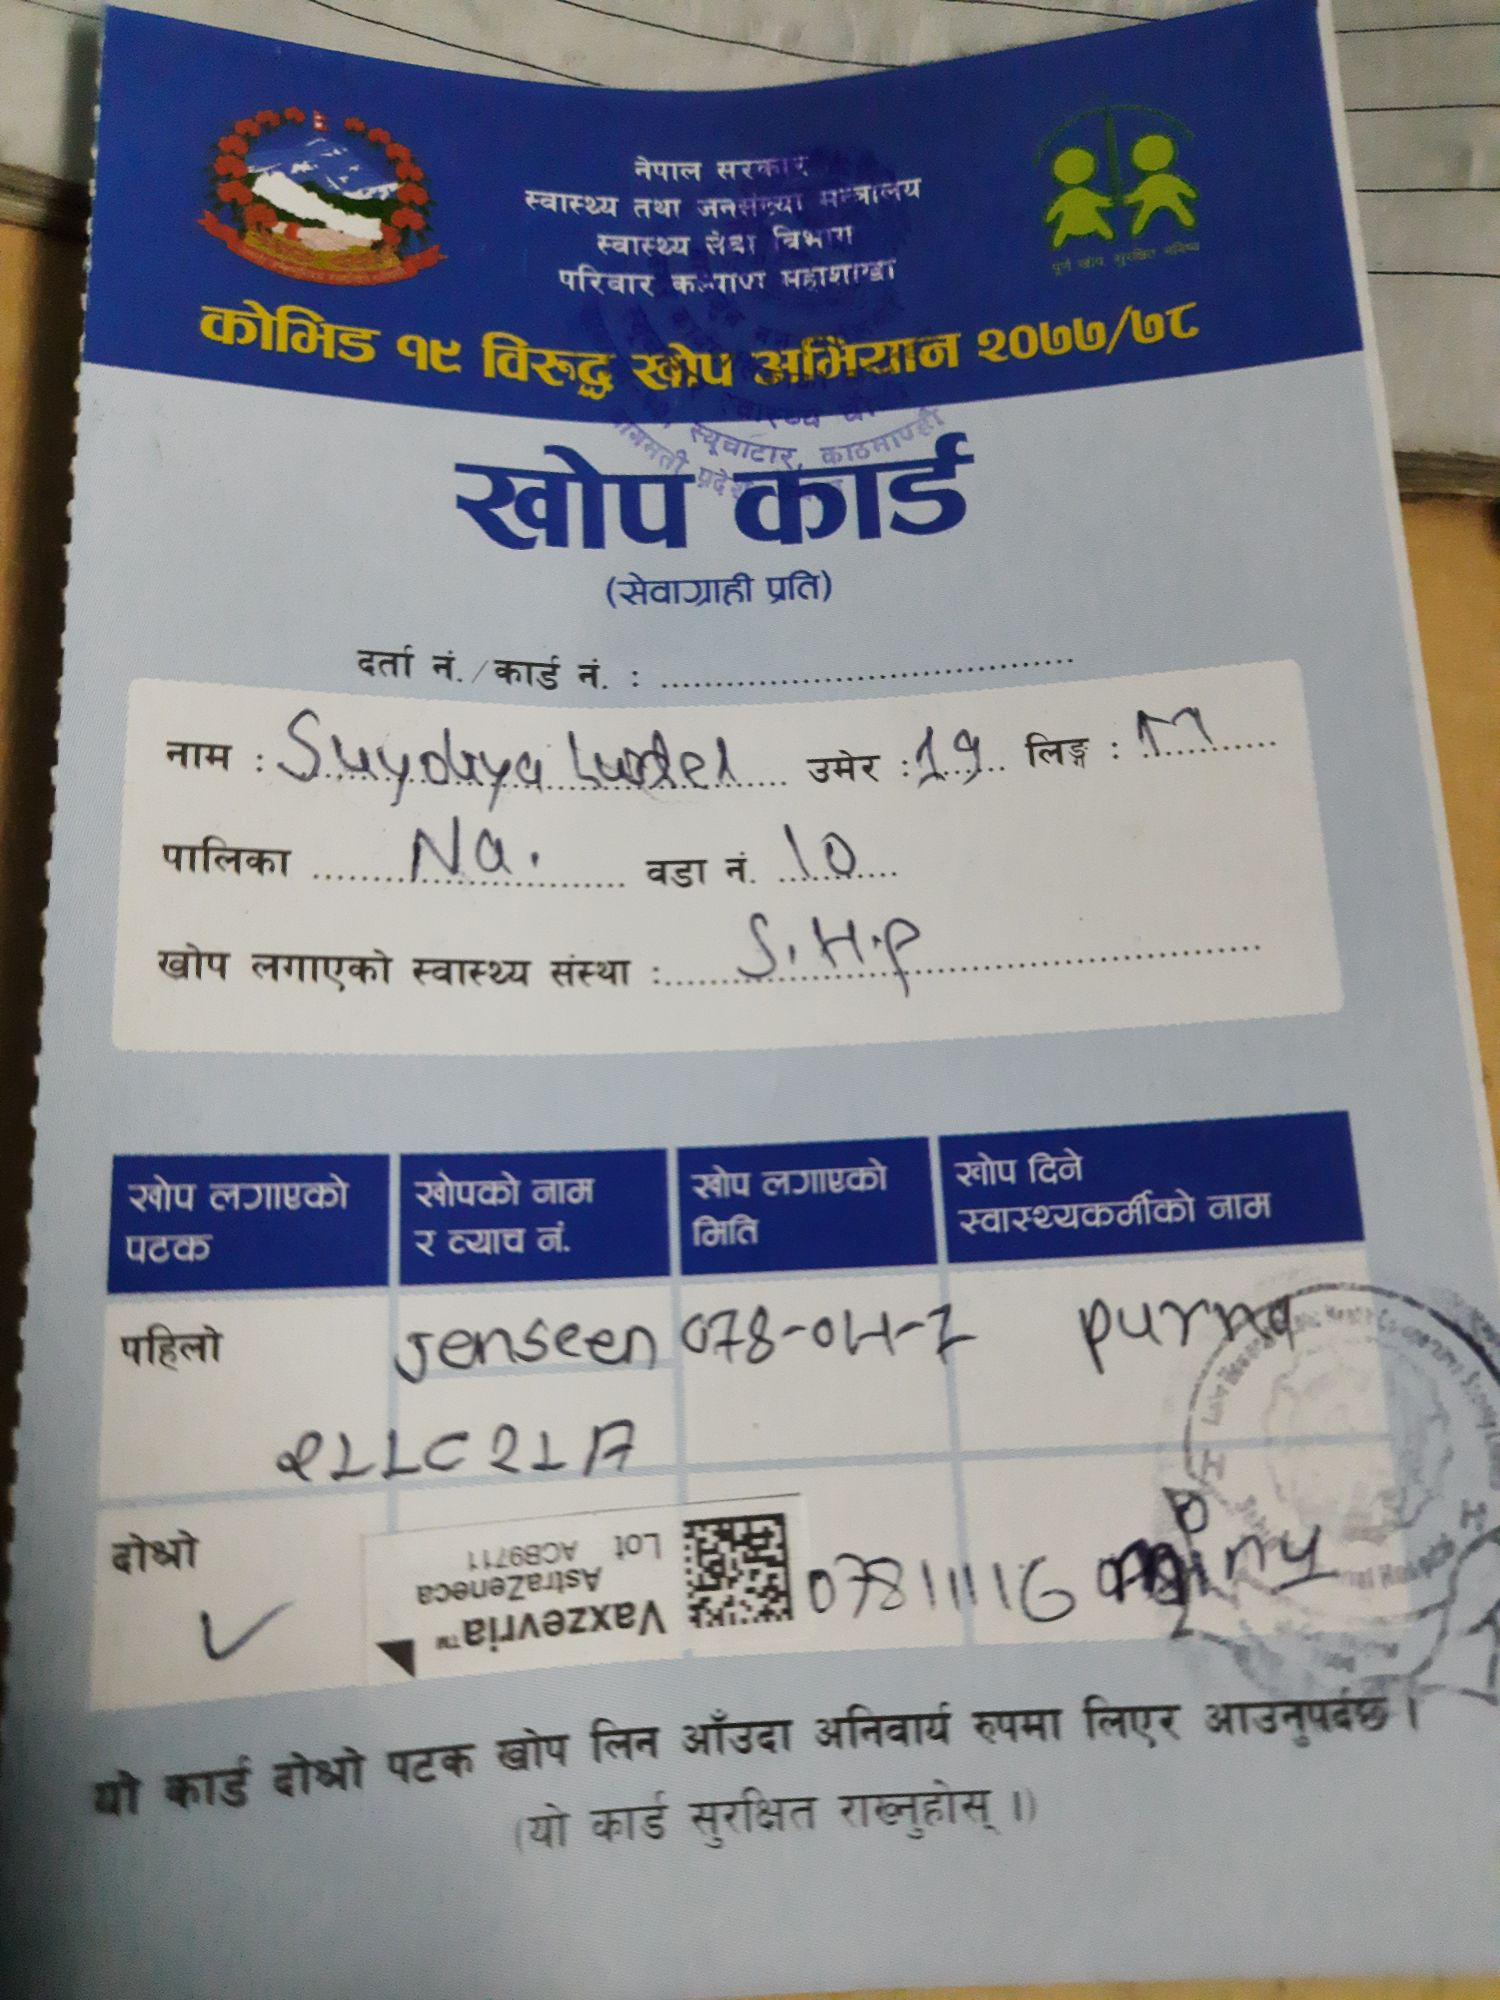 नेपाल सरकार
स्वास्थ्य तथा जनसंख्या मन्त्रालय
स्वास्थ्य सेवा विभाग
परिवार कल्याण महाशाखा
पूर्ण खोप सुरक्षित भविष्य
कोभिड १९ विरुद्ध खोप अभियान २०७७/७८
स्यूचाटार, काठमाण्डौ
बागमती प्रदेश
खोप कार्ड
(सेवाग्राही प्रति)
दर्ता नं. / कार्ड नं. :
नाम : उमेर : 19 लिङ्ग : M
पालिका Na. वडा नं. 10
खोप लगाएको स्वास्थ्य संस्था : S.H.P
खोप लगाएको पटक खोपको नाम र व्याच नं. खोप लगाएको मिति खोप दिने स्वास्थ्यकर्मीको नाम
पहिलो Jenseen 078-04-7 purna
211C21A
दोश्रो 07811116
Vaxzevria™
AstraZeneca
Lot ACB9711
यो कार्ड दोश्रो पटक खोप लिन आँउदा अनिवार्य रुपमा लिएर आउनुपर्दछ ।
(यो कार्ड सुरक्षित राख्नुहोस् ।)